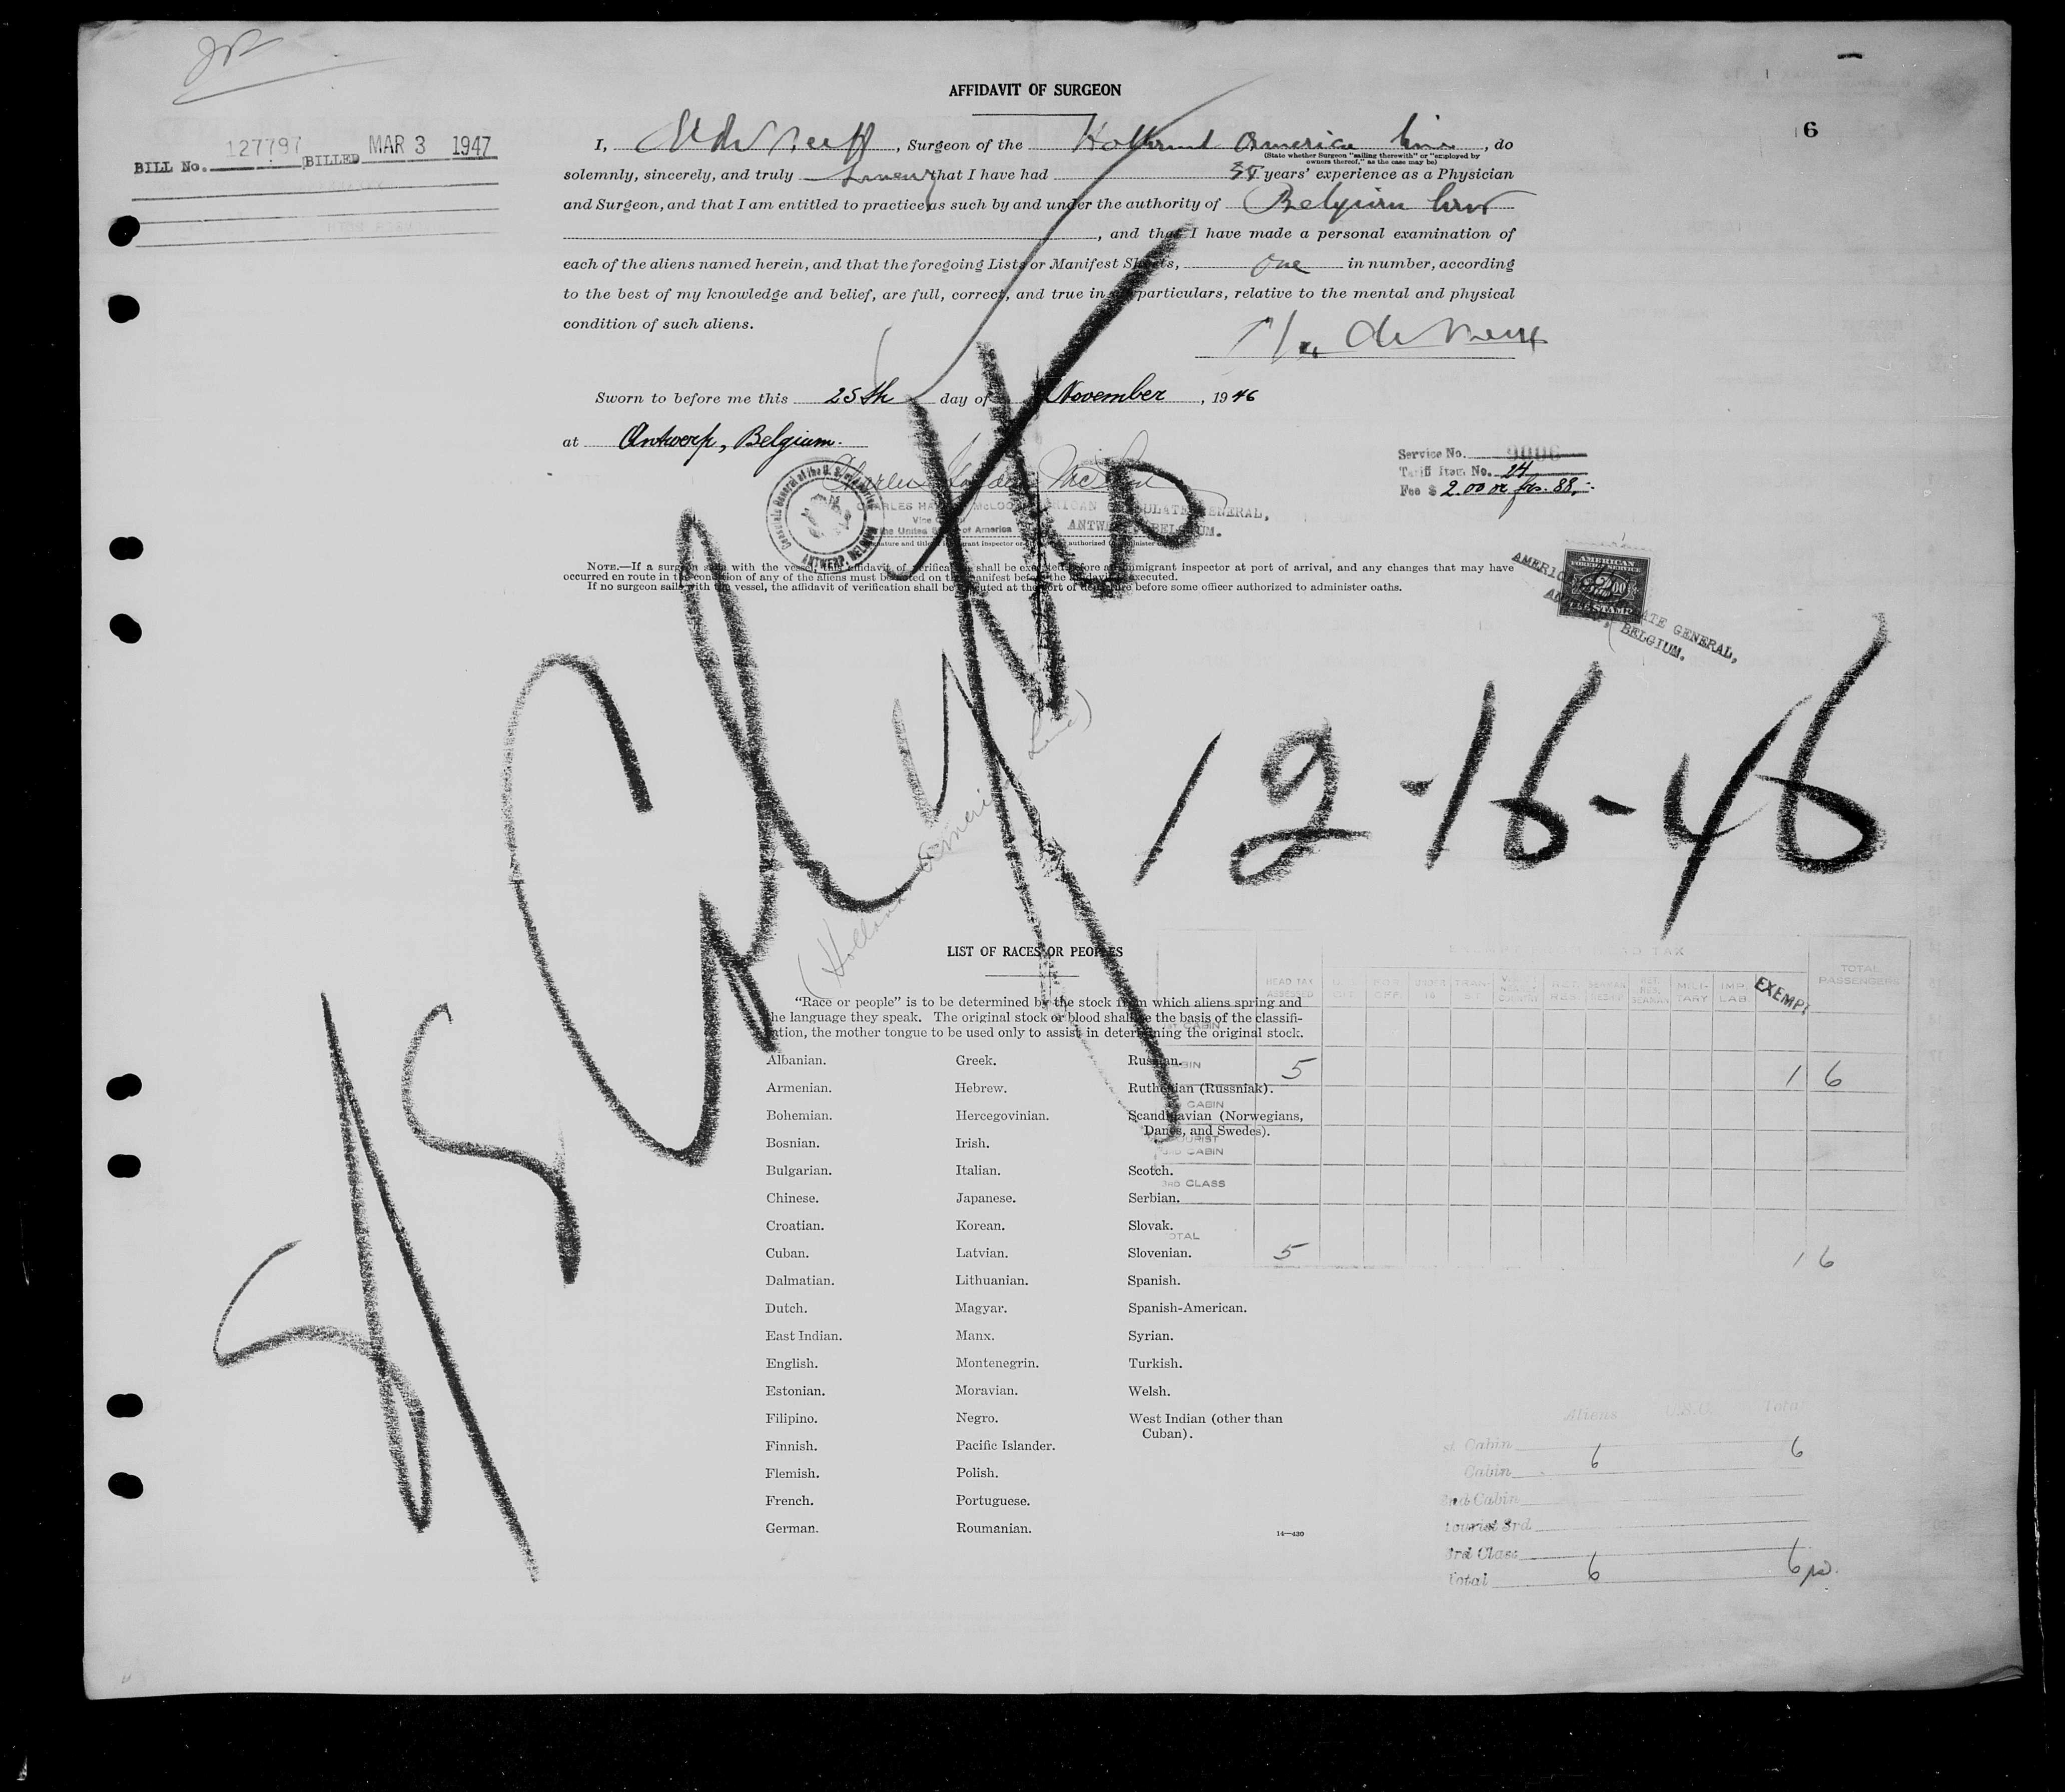 AFFIDAVIT OF SURGEON
6
BILL No. 127797 BILLED MAR 3 1947
I, , Surgeon of the Holland America Line, do
(State whether Surgeon "sailing therewith" or "employed by
owners thereof," as the case may be)
solemnly, sincerely, and truly swear that I have had years' experience as a Physician
and Surgeon, and that I am entitled to practice as such by and under the authority of Belgian law
, and that I have made a personal examination of
each of the aliens named herein, and that the foregoing Lists or Manifest Sheets, one in number, according
to the best of my knowledge and belief, are full, correct, and true in particulars, relative to the mental and physical
condition of such aliens.
Sworn to before me this 25th day of November, 1946
at Antwerp, Belgium.
Service No.
Tariff Item No. 24
Fee $ 2.00 or frs. 88,-
CHARLES McLOO AMERICAN CONSULATE GENERAL,
Vice
the United States of America ANTWERP, BELGIUM.
NOTE.—If a surgeon sails with the vessel, affidavit of verification shall be executed before an immigrant inspector at port of arrival, and any changes that may have
occurred en route in the condition of any of the aliens must be noted on the manifest before the affidavit is executed.
If no surgeon sails with the vessel, the affidavit of verification shall be executed at the port of departure before some officer authorized to administer oaths.
AMERICAN
FOREIGN SERVICE
$2.00
FEE STAMP
AMERICAN CONSULATE GENERAL,
ANTWERP, BELGIUM.
12-16-46
(Holland America Line)
S/S
LIST OF RACES OR PEOPLES
"Race or people" is to be determined by the stock from which aliens spring and
the language they speak. The original stock or blood shall be the basis of the classifi-
cation, the mother tongue to be used only to assist in determining the original stock.
Albanian. Greek. Russian.
Armenian. Hebrew. Ruthenian (Russniak).
Bohemian. Hercegovinian. Scandinavian (Norwegians,
Danes, and Swedes).
Bosnian. Irish.
Bulgarian. Italian. Scotch.
Chinese. Japanese. Serbian.
Croatian. Korean. Slovak.
Cuban. Latvian. Slovenian.
Dalmatian. Lithuanian. Spanish.
Dutch. Magyar. Spanish-American.
East Indian. Manx. Syrian.
English. Montenegrin. Turkish.
Estonian. Moravian. Welsh.
Filipino. Negro. West Indian (other than
Cuban).
Finnish. Pacific Islander.
Flemish. Polish.
French. Portuguese.
German. Roumanian.
14—430
HEAD TAX ASSESSED MILITARY IMP. LAB. EXEMPT TOTAL PASSENGERS
CABIN 5 1 6
CABIN
TOURIST
3RD CABIN
3RD CLASS
TOTAL 5 1 6
Aliens U.S.C. Total
1st Cabin
Cabin 6 6
2nd Cabin
Tourist 3rd
3rd Class
Total 6 6